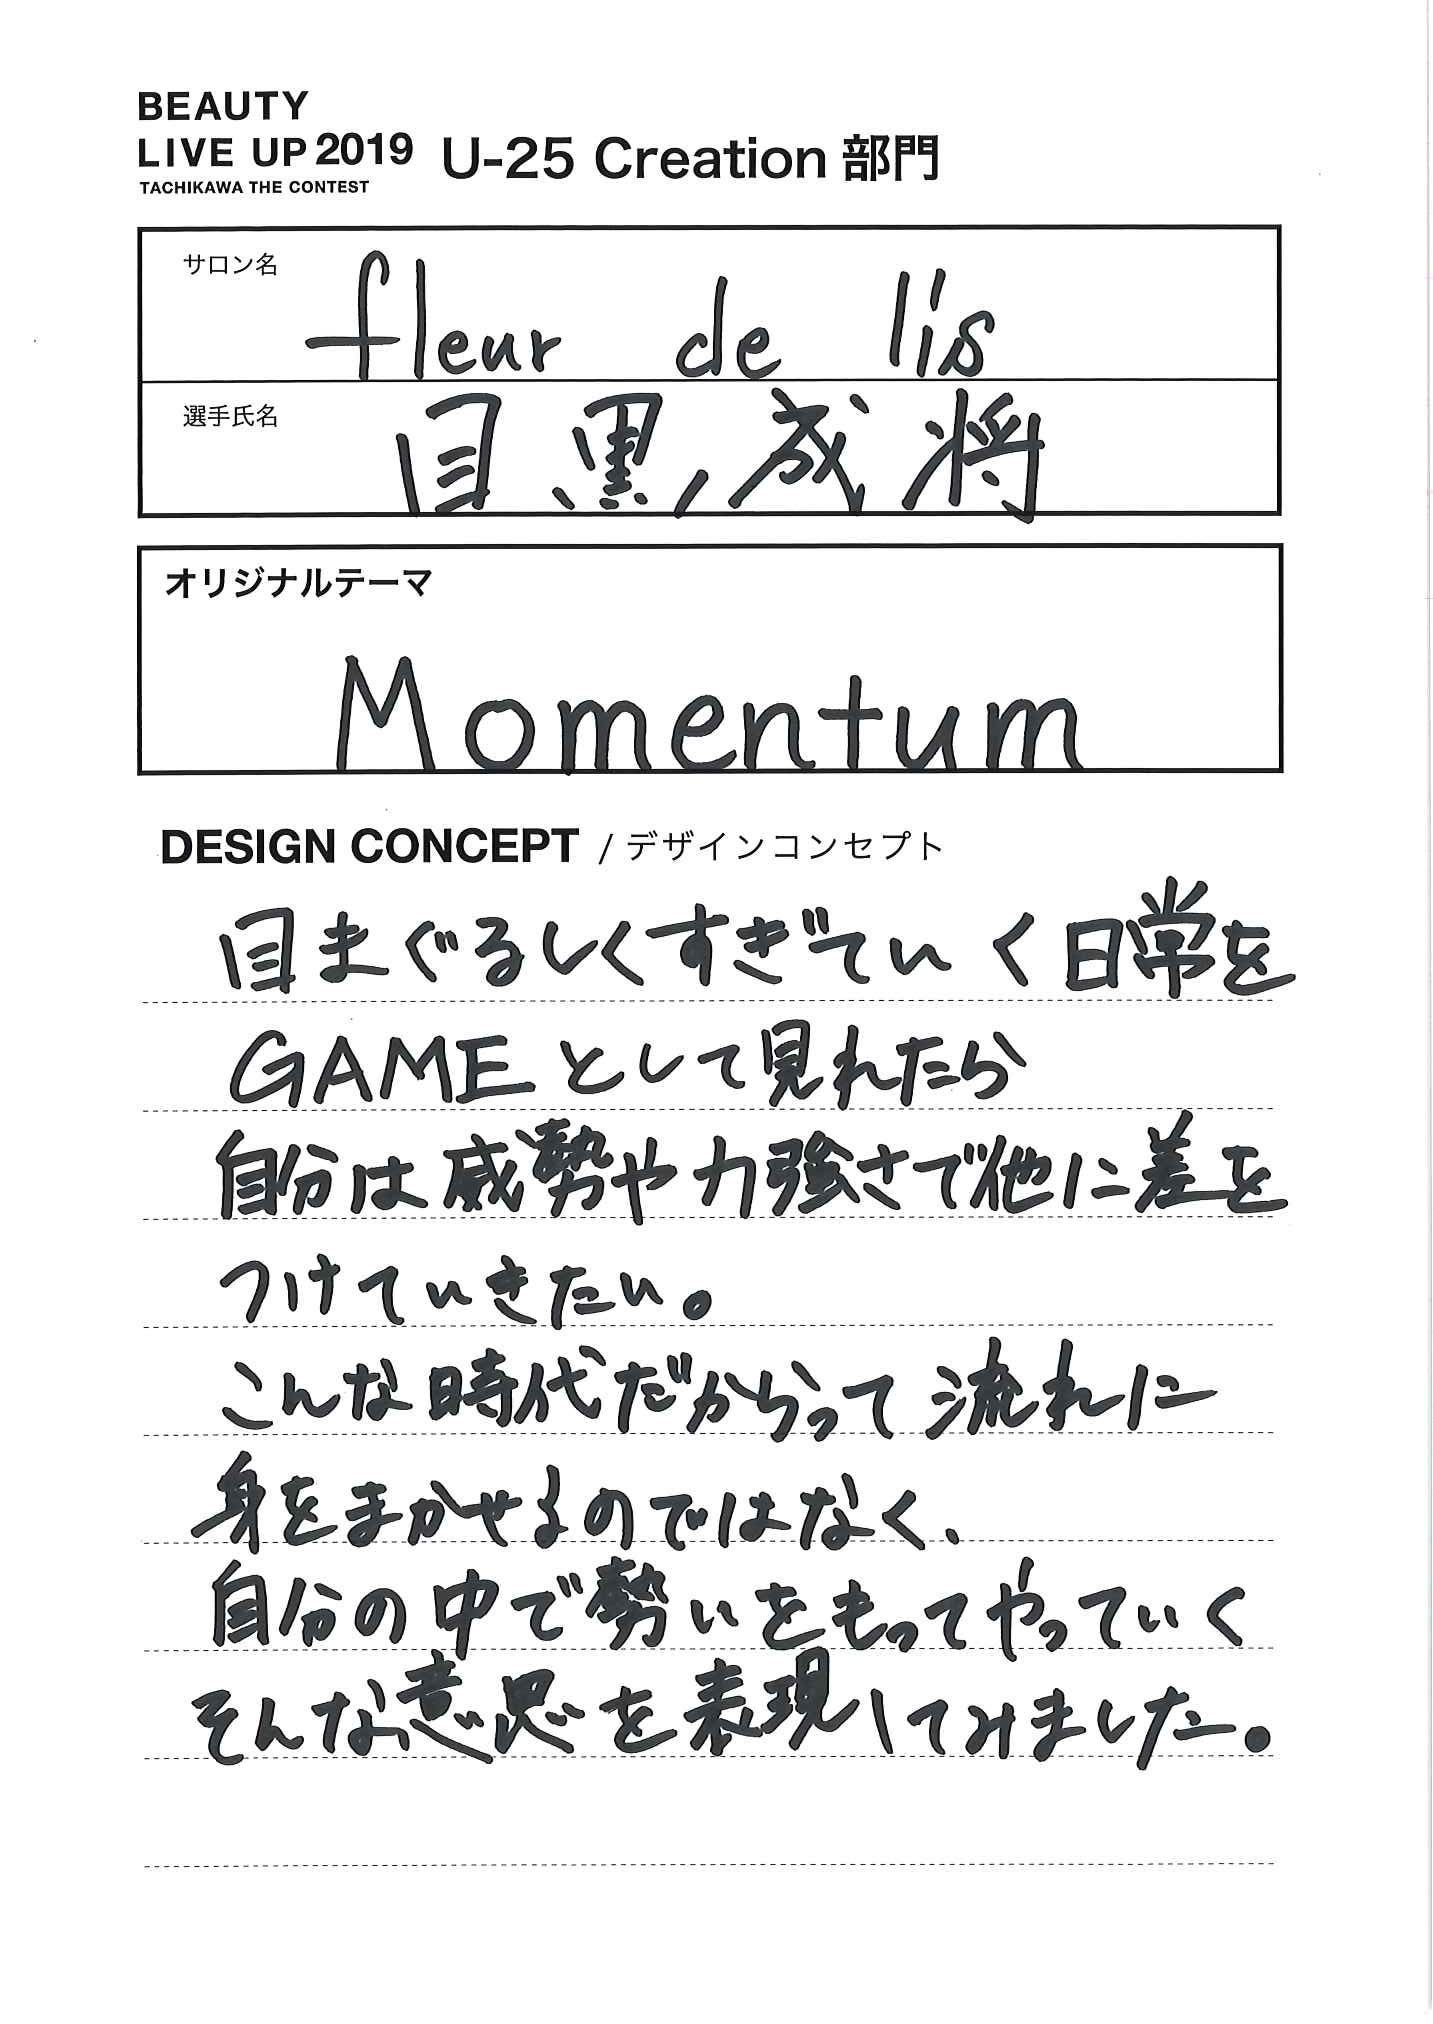 BEAUTY
LIVE UP 2019 U-25 Creation 部門
TACHIKAWA THE CONTEST
サロン名
fleur de lis
選手氏名
目黒成将
オリジナルテーマ
Momentum
DESIGN CONCEPT / デザインコンセプト
目まぐるしくすぎていく日常を
GAMEとして見れたら
自分は威勢や力強さで他に差を
つけていきたい。
こんな時代だからって流れに
身をまかせるのではなく、
自分の中で勢いをもってやっていく
そんな意思を表現してみました。